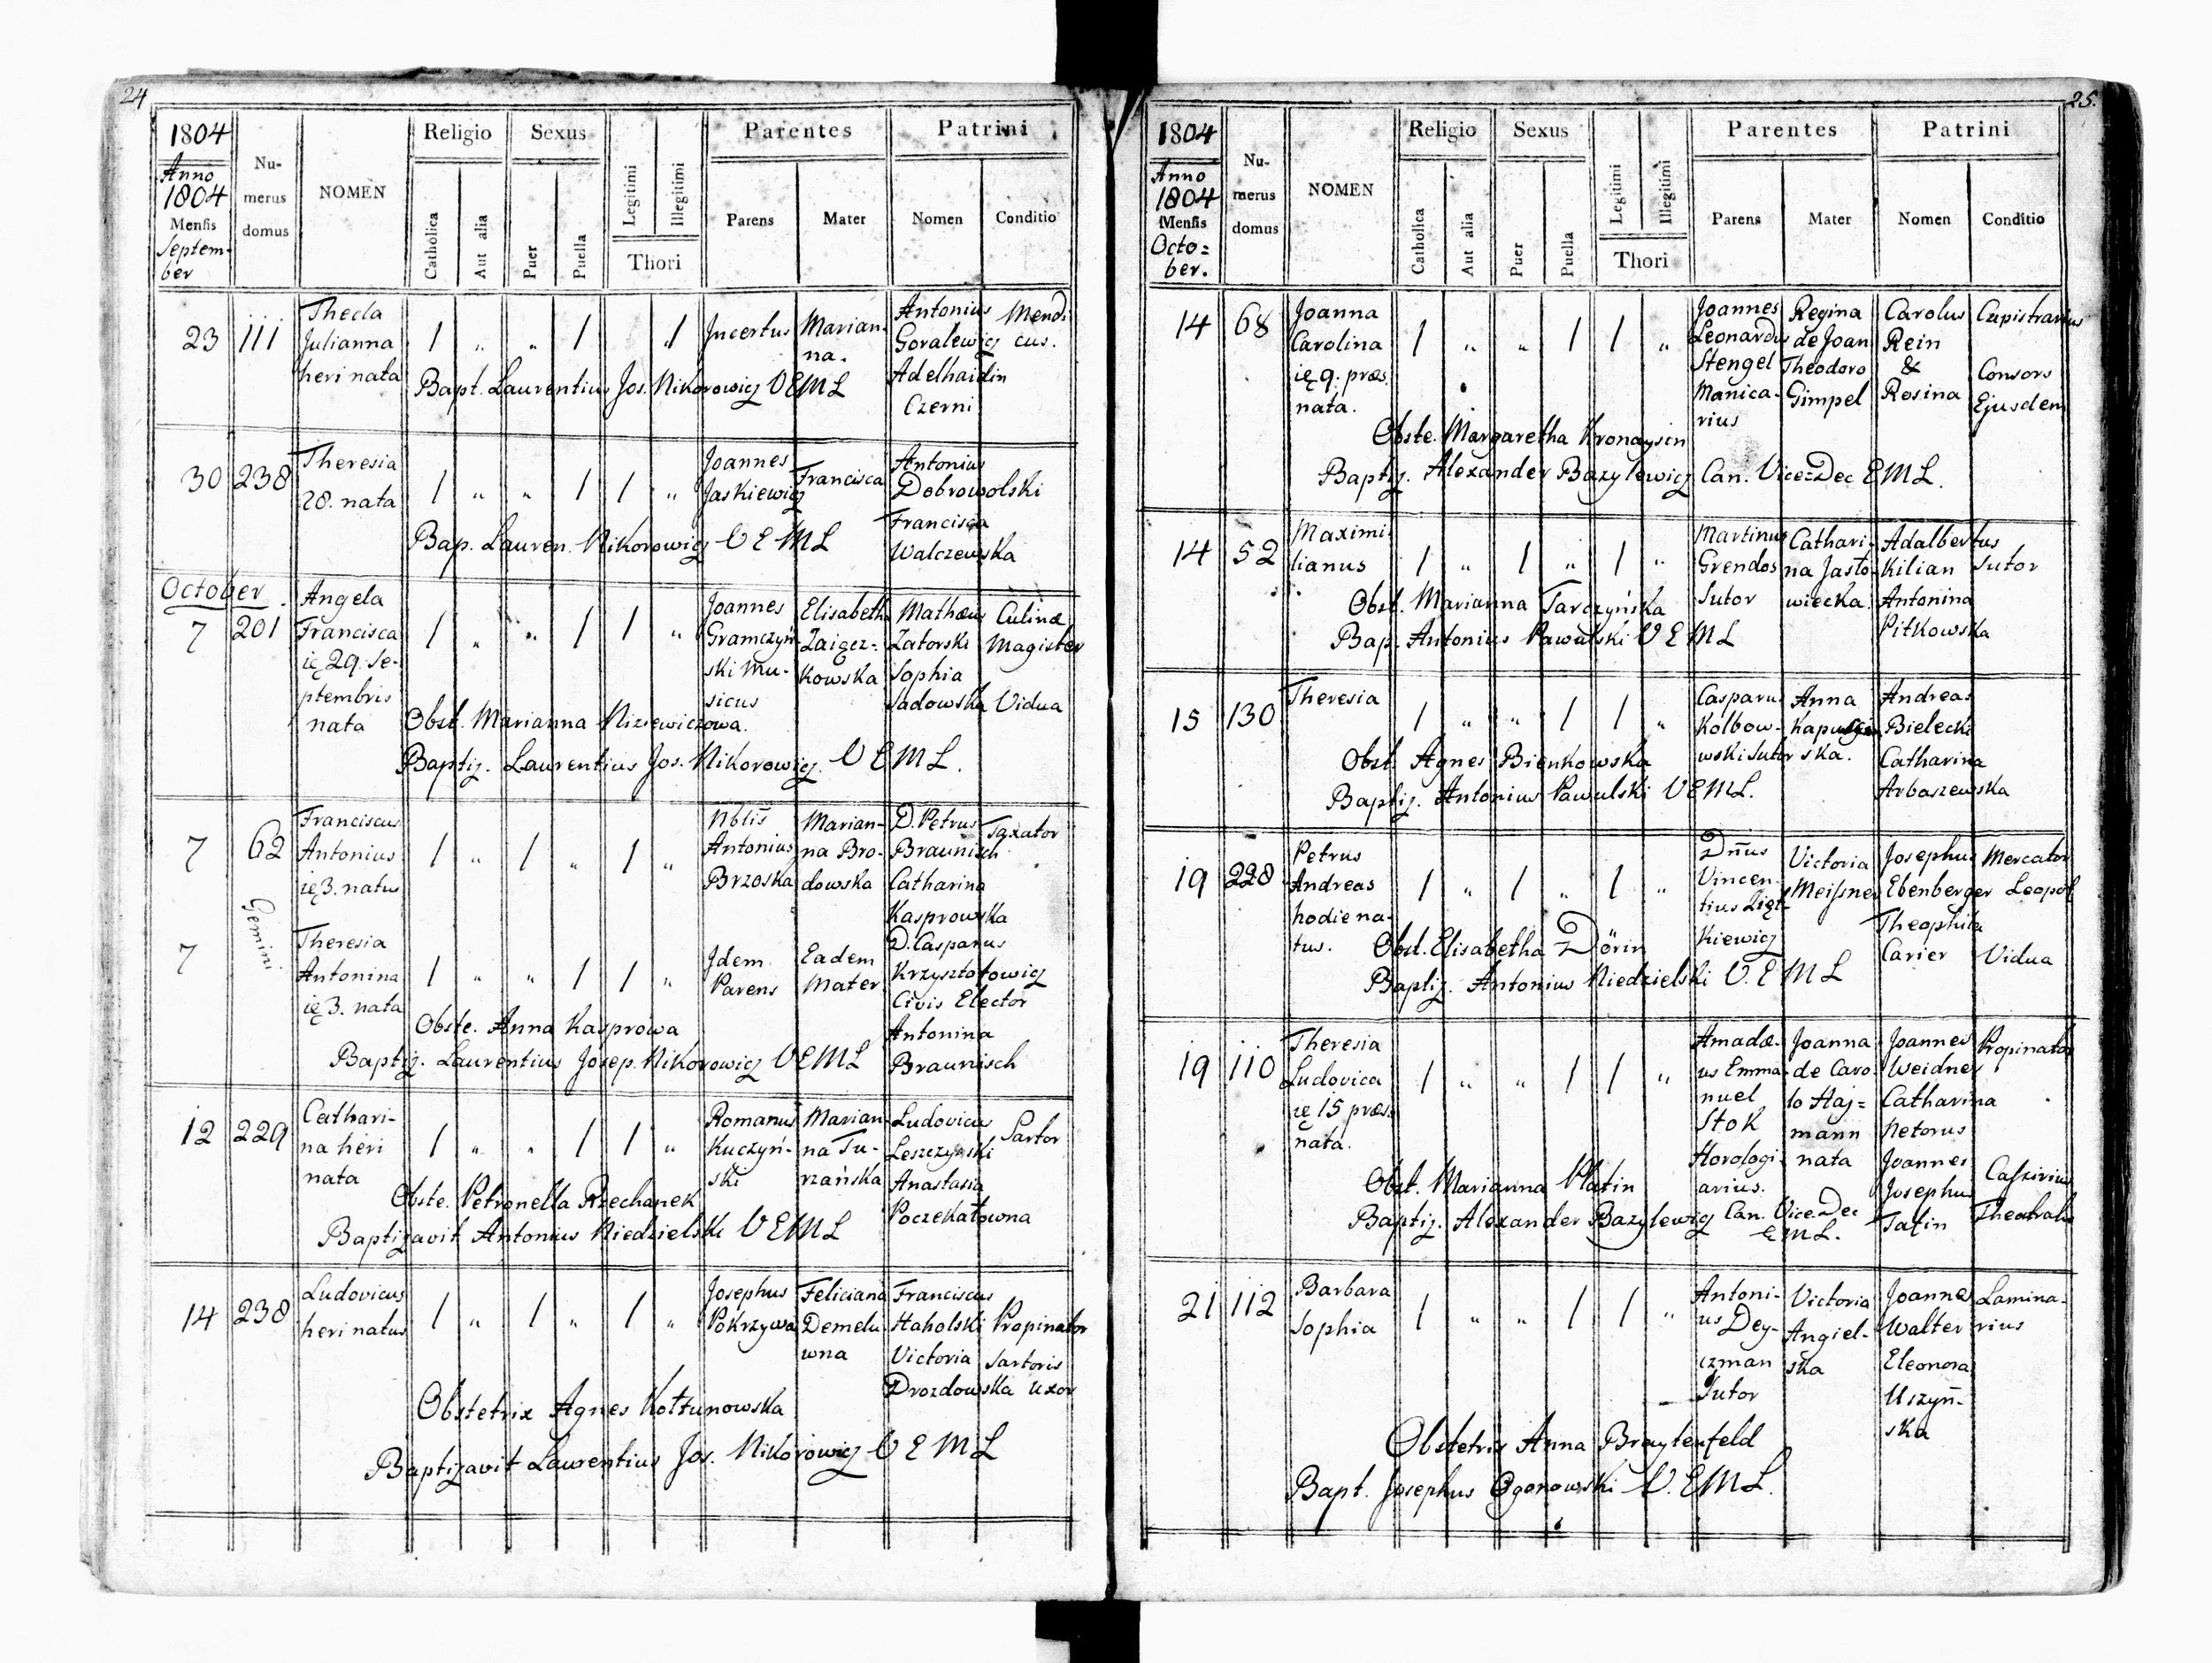 24
1804
Anno
1804
Mensis
Septem-
ber
Nu-
merus
domus
NOMEN
Religio
Catholica
Aut alia
Sexus
Puer
Puella
Legitimi
Illegitimi
Thori
Parentes
Parens
Mater
Patrini
Nomen
Conditio
23 111
Thecla
Julianna
heri nata
Incertus
Marian-
na.
Antonius
Goralewicz
Adelhaidin
Czerni
Mendi
cus.
Bapt. Laurentius Jos. Nikorowicz V E M L
30 238
Theresia
28. nata
Joannes
Jaskiewicz
Francisca
Antonius
Dobrowolski
Francisca
Walczewska
Bap. Lauren. Nikorowicz V E M L
October
7 201
Angela
Francisca
ię 29. Se-
ptembris
nata
Joannes
Gramczyń-
ski Mu-
sicus
Elisabetha
Zaigcz-
kowska
Mathæus
Zatorski
Sophia
Sadowska
Culinæ
Magister
Vidua
Obst. Marianna Niziewiczowa.
Baptiz. Laurentius Jos. Nikorowicz V E M L.
7 62
Franciscus
Antonius
ię 3. natus
Nblis
Antonius
Brzoska
Marian-
na Bro-
dowska
D. Petrus
Braunisch
Catharina
Kasprowska
Taxator
Gemini
7
Theresia
Antonina
ię 3. nata
Idem
Parens
Eadem
Mater
D. Casparus
Krzysztofowicz
Civis Elector
Antonina
Braunisch
Obste. Anna Kasprowa
Baptiz. Laurentius Josep. Nikorowicz V E M L
12 229
Cathari-
na heri
nata
Romanus
Kuczyń-
ski
Marian-
na Tu-
rzańska
Ludovicus
Leszczyński
Anastasia
Poczekatowna
Sartor
Obste. Petronella Rzechanek
Baptizavit Antonius Niedzielski V E M L
14 238
Ludovicus
heri natus
Josephus
Pokrzywa
Feliciana
Demelu
wna
Franciscus
Staholski
Victoria
Drozdowska
Propinator
Sartoris
uxor
Obstetrix Agnes Kołtunowska
Baptizavit Laurentius Jos. Nikorowicz V E M L
25.
1804
Anno
1804
Mensis
Octo=
ber.
Nu-
merus
domus
NOMEN
Religio
Catholica
Aut alia
Sexus
Puer
Puella
Legitimi
Illegitimi
Thori
Parentes
Parens
Mater
Patrini
Nomen
Conditio
14 68
Joanna
Carolina
ię 9. præs.
nata.
Joannes
Leonardus
Stengel
Manica-
rius
Regina
de Joan
Theodoro
Gimpel
Carolus
Rein
&
Rosina
Capistrarius
Consors
Ejusdem
Obste. Margaretha Kronaysin
Baptiz. Alexander Bazylewicz Can. Vice=Dec E M L.
14 52
Maximi-
lianus
Martinus
Grendos
Sutor
Cathari-
na Jasto-
wiecka
Adalbertus
Kilian
Antonina
Pitkowska
Sutor
Obst. Marianna Tarczyńska
Bap. Antonius Pawulski V E M L
15 130
Theresia
Casparus
Kolbow-
wski Sutor
Anna
ska.
Andreas
Bielecki
Catharina
Arbaszewska
Obst. Agnes Bienkowska
Baptiz. Antonius Pawulski V E M L.
19 228
Petrus
Andreas
hodie na-
tus.
Dnus
Vincen-
tius Ligt-
kiewicz
Victoria
Meißner
Josephus
Ebenberger
Theophila
Carier
Mercator
Leopol
Vidua
Obst. Elisabetha Dörin
Baptiz. Antonius Niedzielski V. E M L
19 110
Theresia
Ludovica
ię 15 præs.
nata.
Amadæ-
us Emma-
nuel
Stok
Horologi-
arius.
Joanna
de Caro-
lo Haj=
mann
nata
Joannes
Weidner
Catharina
Netorus
Joannes
Josephus
Tatin
Propinator
Theatralis
Obst. Marianna Platin
Baptiz. Alexander Bazylewicz Can. Vice. Dec
E M L.
21 112
Barbara
Sophia
Antoni-
us Dey-
czman
Sutor
Victoria
Angiel-
ska
Joannes
Walter
Eleonora
Uszyń-
ska
Lamina-
rius
Obstetrix Anna Braytenfeld
Bapt. Josephus Ogonowski V. E M L.